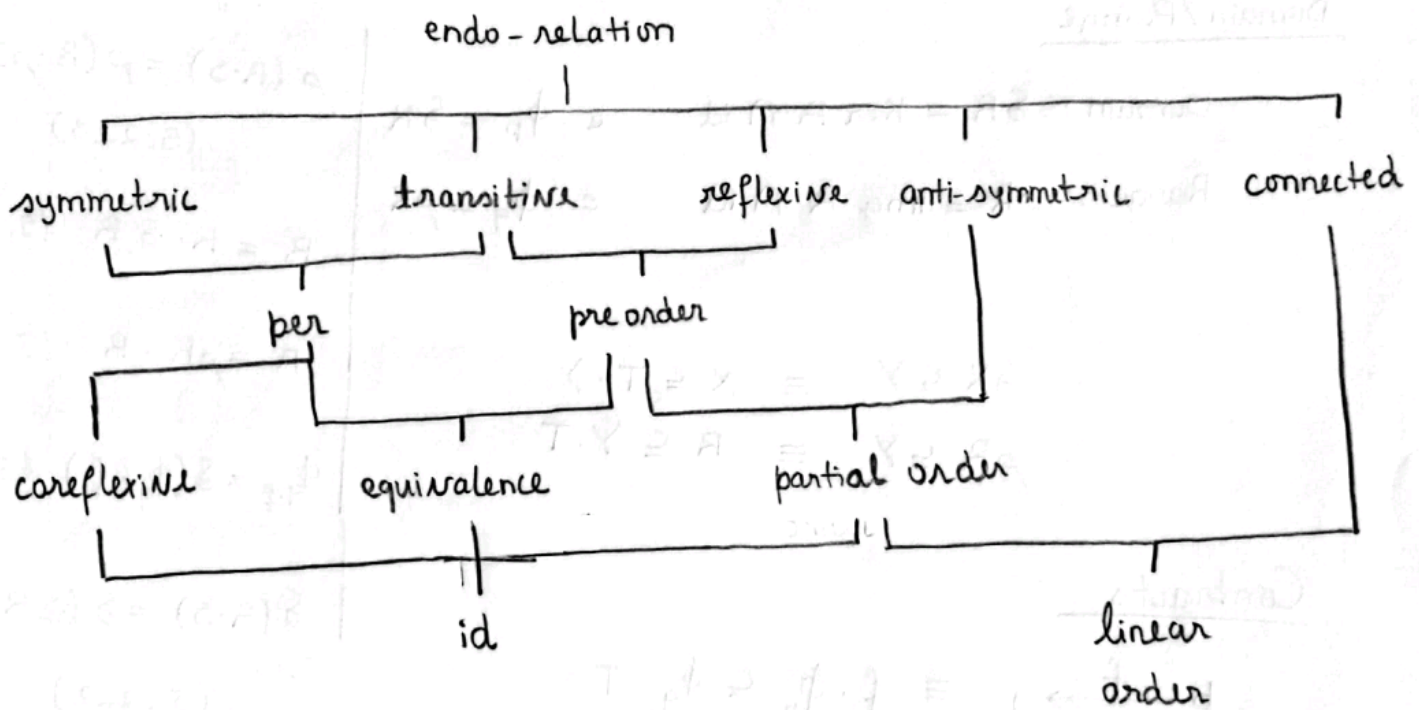 endo-relation
symmetric transitive reflexive anti-symmetric connected
per preorder
coreflexive equivalence partial order
id linear
order